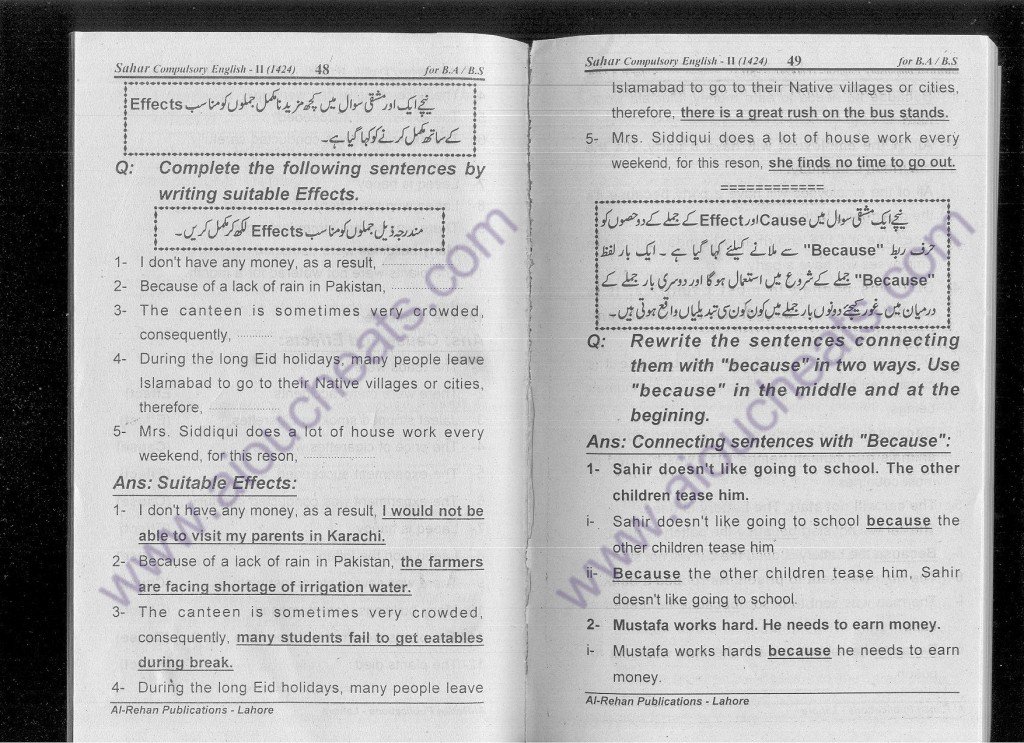 Sahar Compulsory English - II (1424) 48 for B.A / B.S
نیچے ایک اور مشقی سوال میں کچھ مزید نامکمل جملوں کو مناسب Effects
کے ساتھ مکمل کرنے کو کہا گیا ہے۔
Q: Complete the following sentences by
writing suitable Effects.
مندرجہ ذیل جملوں کو مناسب Effects لکھ کر مکمل کریں۔
1- I don't have any money, as a result, ....................
2- Because of a lack of rain in Pakistan, ....................
3- The canteen is sometimes very crowded,
consequently, ....................
4- During the long Eid holidays, many people leave
Islamabad to go to their Native villages or cities,
therefore, ....................
5- Mrs. Siddiqui does a lot of house work every
weekend, for this reson, ....................
Ans: Suitable Effects:
1- I don't have any money, as a result, I would not be
able to visit my parents in Karachi.
2- Because of a lack of rain in Pakistan, the farmers
are facing shortage of irrigation water.
3- The canteen is sometimes very crowded,
consequently, many students fail to get eatables
during break.
4- During the long Eid holidays, many people leave
Al-Rehan Publications - Lahore
Sahar Compulsory English - II (1424) 49 for B.A / B.S
Islamabad to go to their Native villages or cities,
therefore, there is a great rush on the bus stands.
5- Mrs. Siddiqui does a lot of house work every
weekend, for this reson, she finds no time to go out.
============
نیچے ایک مشقی سوال میں Cause اور Effect کے جملے کے دو حصوں کو
حرف ربط "Because" سے ملانے کیلئے کہا گیا ہے ۔ ایک بار لفظ
"Because" جملے کے شروع میں استعمال ہوگا اور دوسری بار جملے کے
درمیان میں ۔ غور کیجئے دونوں بار جملے میں کون کون سی تبدیلیاں واقع ہوتی ہیں۔
Q: Rewrite the sentences connecting
them with "because" in two ways. Use
"because" in the middle and at the
begining.
Ans: Connecting sentences with "Because":
1- Sahir doesn't like going to school. The other
children tease him.
i- Sahir doesn't like going to school because the
other children tease him
ii- Because the other children tease him, Sahir
doesn't like going to school.
2- Mustafa works hard. He needs to earn money.
i- Mustafa works hards because he needs to earn
money.
Al-Rehan Publications - Lahore
www.aioucheats.com
www.aioucheats.com